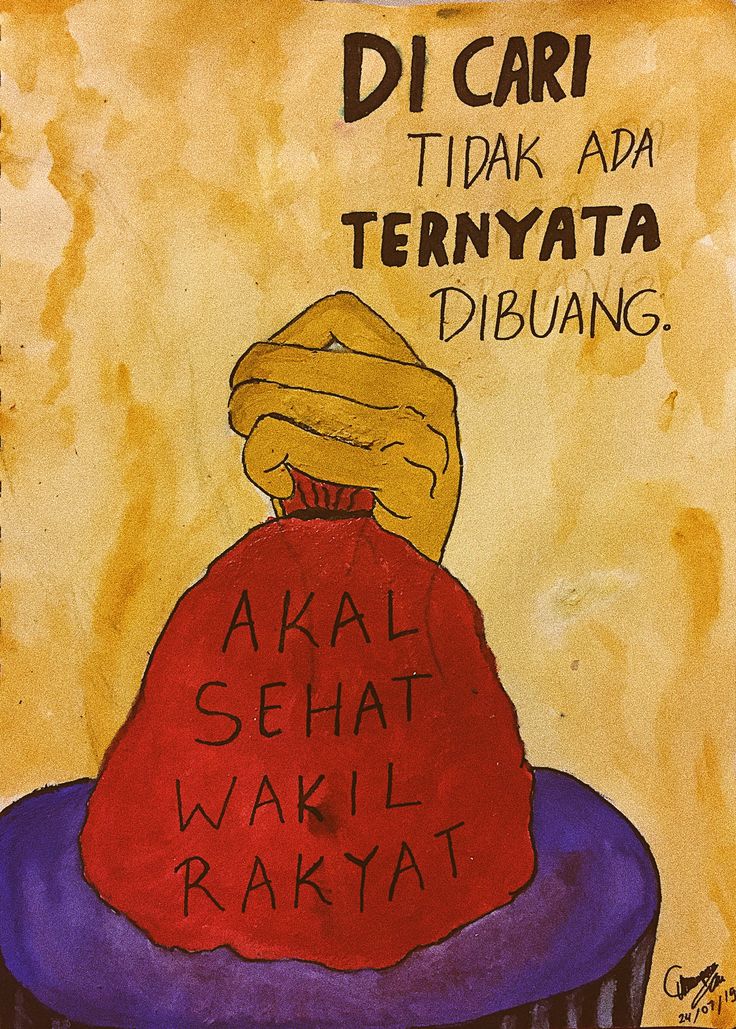 DI CARI
TIDAK ADA
TERNYATA
DIBUANG.
AKAL
SEHAT
WAKIL
RAKYAT
24/07/19